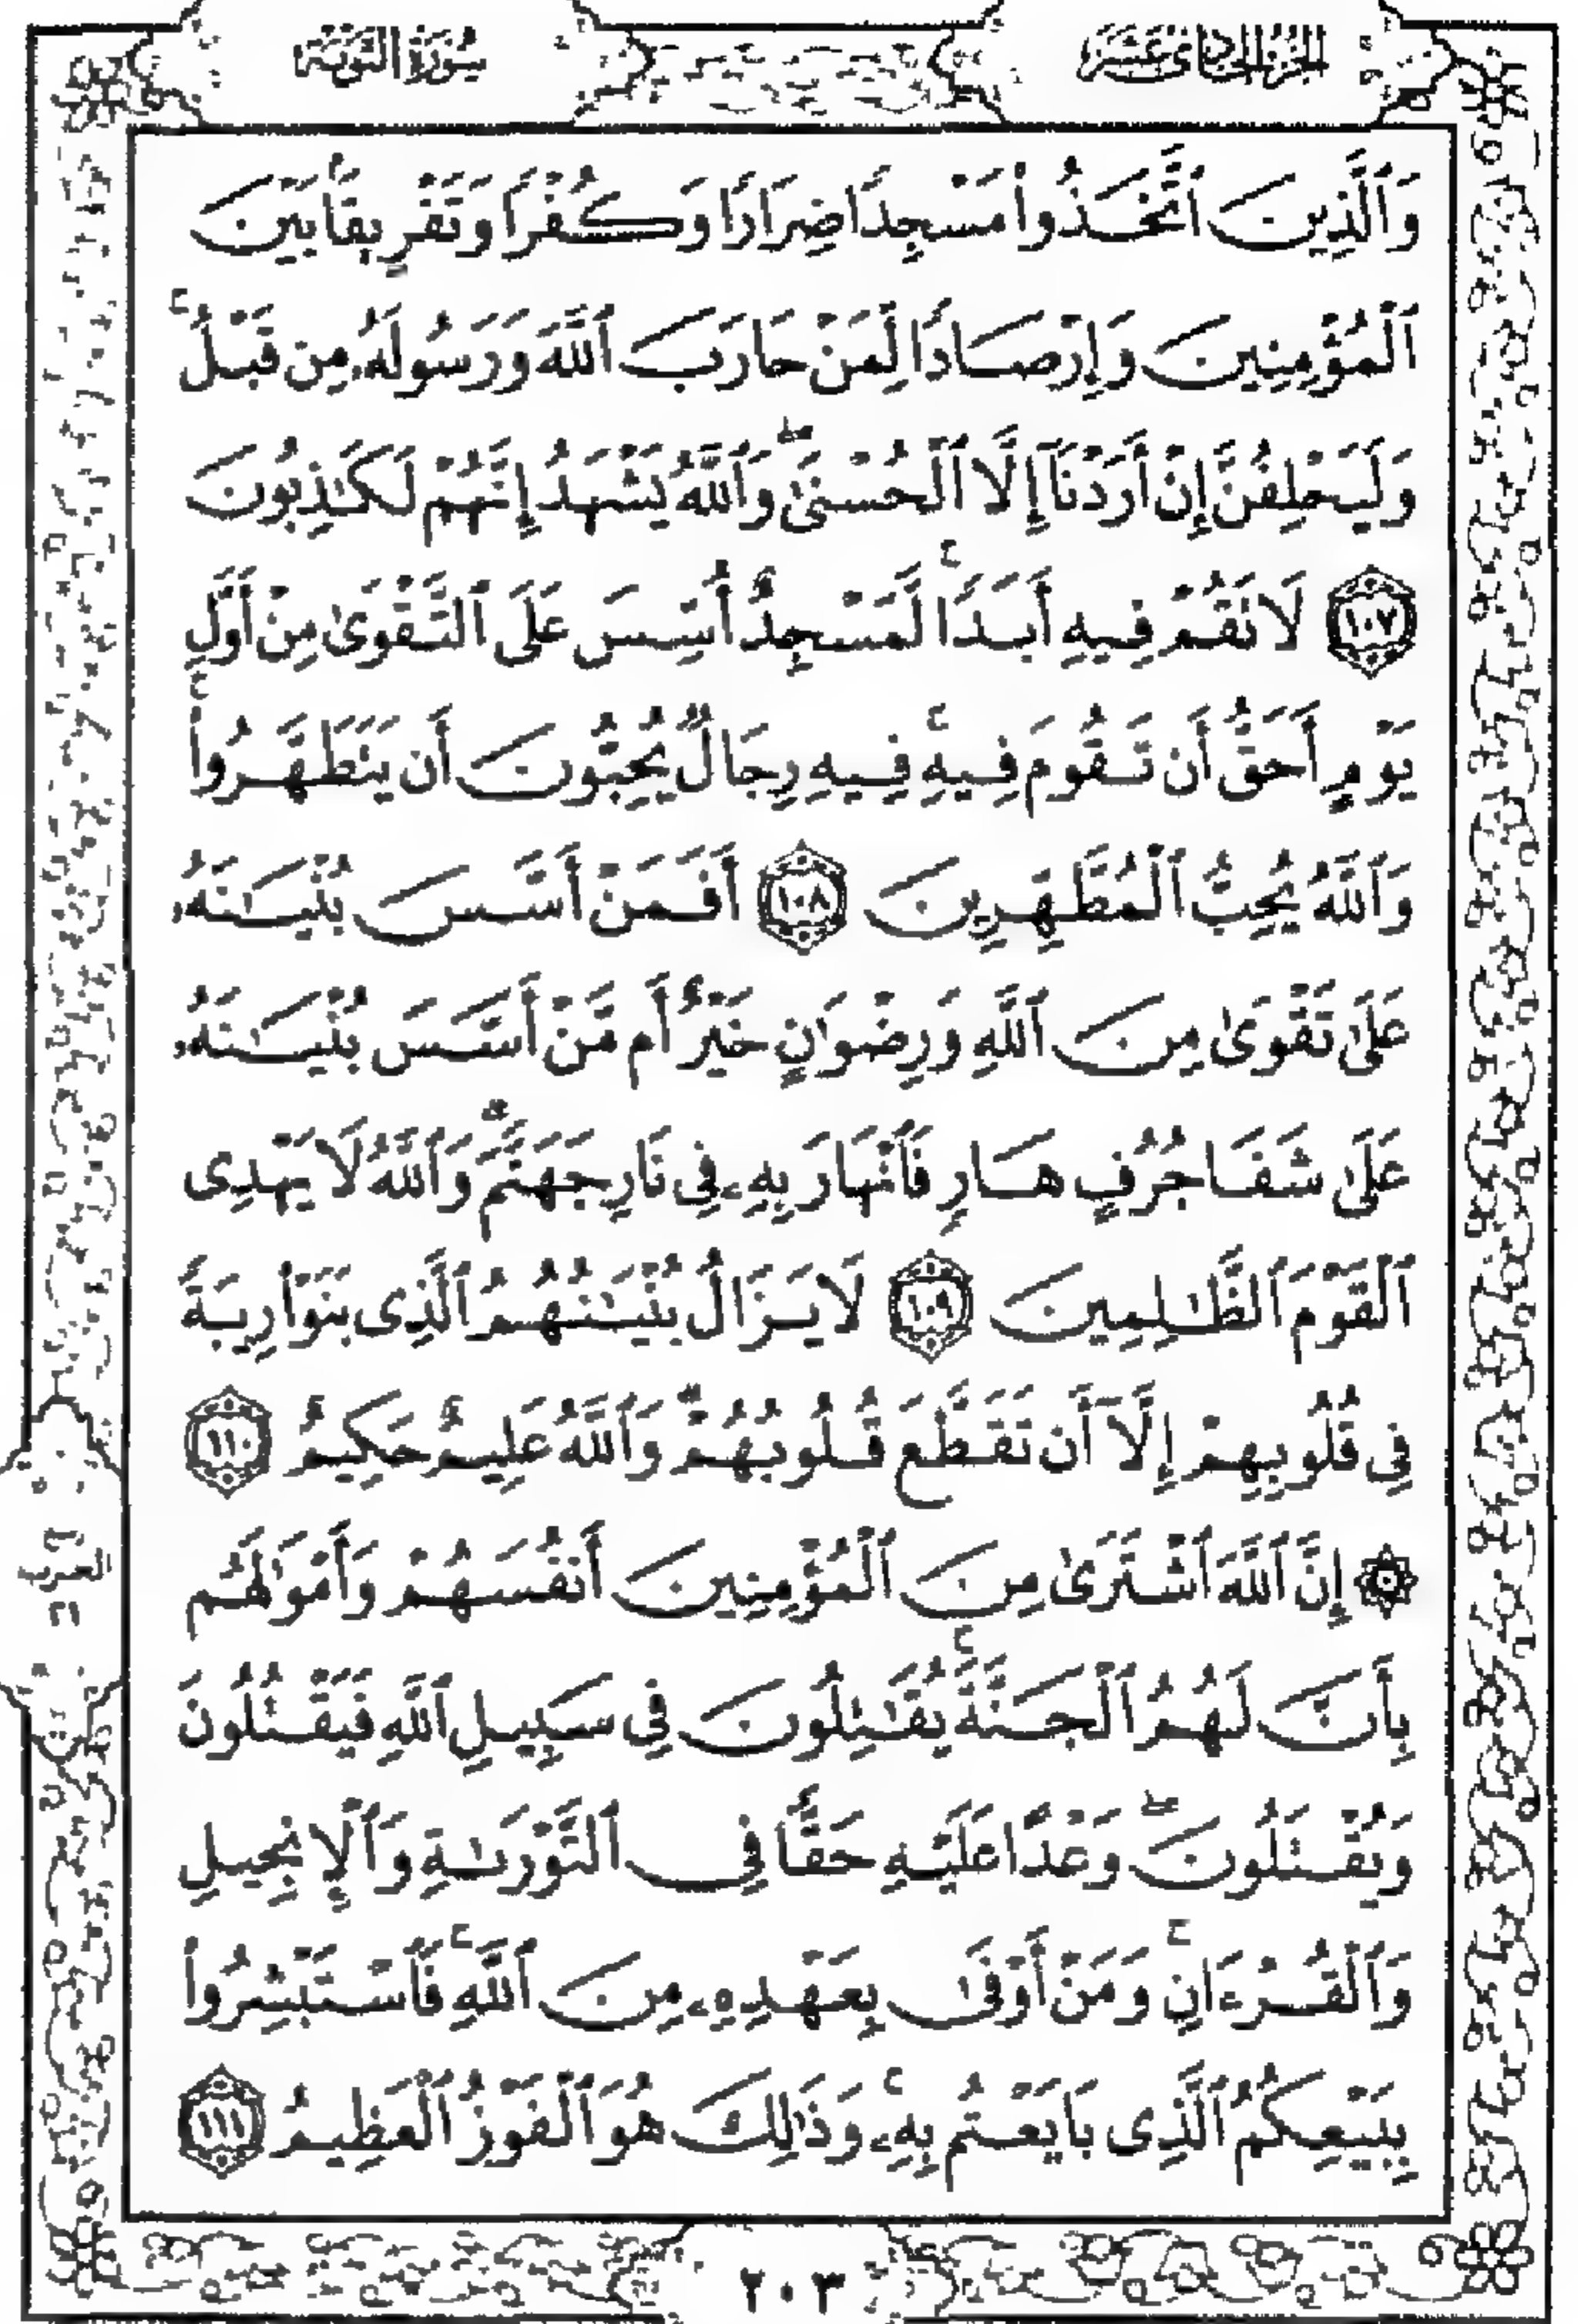 الجزء الحادي عشر
سورة التوبة
وَٱلَّذِينَ ٱتَّخَذُوا۟ مَسْجِدًا ضِرَارًا وَكُفْرًا وَتَفْرِيقًۢا بَيْنَ
ٱلْمُؤْمِنِينَ وَإِرْصَادًا لِّمَنْ حَارَبَ ٱللَّهَ وَرَسُولَهُۥ مِن قَبْلُ ۚ
وَلَيَحْلِفُنَّ إِنْ أَرَدْنَآ إِلَّا ٱلْحُسْنَىٰ ۖ وَٱللَّهُ يَشْهَدُ إِنَّهُمْ لَكَـٰذِبُونَ
﴿١٠٧﴾ لَا تَقُمْ فِيهِ أَبَدًا ۚ لَّمَسْجِدٌ أُسِّسَ عَلَى ٱلتَّقْوَىٰ مِنْ أَوَّلِ
يَوْمٍ أَحَقُّ أَن تَقُومَ فِيهِ ۚ فِيهِ رِجَالٌ يُحِبُّونَ أَن يَتَطَهَّرُوا۟ ۚ
وَٱللَّهُ يُحِبُّ ٱلْمُطَّهِّرِينَ ﴿١٠٨﴾ أَفَمَنْ أَسَّسَ بُنْيَـٰنَهُۥ
عَلَىٰ تَقْوَىٰ مِنَ ٱللَّهِ وَرِضْوَٰنٍ خَيْرٌ أَم مَّنْ أَسَّسَ بُنْيَـٰنَهُۥ
عَلَىٰ شَفَا جُرُفٍ هَارٍ فَٱنْهَارَ بِهِۦ فِى نَارِ جَهَنَّمَ ۗ وَٱللَّهُ لَا يَهْدِى
ٱلْقَوْمَ ٱلظَّـٰلِمِينَ ﴿١٠٩﴾ لَا يَزَالُ بُنْيَـٰنُهُمُ ٱلَّذِى بَنَوْا۟ رِيبَةً
فِى قُلُوبِهِمْ إِلَّآ أَن تَقَطَّعَ قُلُوبُهُمْ ۗ وَٱللَّهُ عَلِيمٌ حَكِيمٌ ﴿١١٠﴾
۞ إِنَّ ٱللَّهَ ٱشْتَرَىٰ مِنَ ٱلْمُؤْمِنِينَ أَنفُسَهُمْ وَأَمْوَٰلَهُم
بِأَنَّ لَهُمُ ٱلْجَنَّةَ ۚ يُقَـٰتِلُونَ فِى سَبِيلِ ٱللَّهِ فَيَقْتُلُونَ
وَيُقْتَلُونَ ۖ وَعْدًا عَلَيْهِ حَقًّا فِى ٱلتَّوْرَىٰةِ وَٱلْإِنجِيلِ
وَٱلْقُرْءَانِ ۚ وَمَنْ أَوْفَىٰ بِعَهْدِهِۦ مِنَ ٱللَّهِ ۚ فَٱسْتَبْشِرُوا۟
بِبَيْعِكُمُ ٱلَّذِى بَايَعْتُم بِهِۦ ۚ وَذَٰلِكَ هُوَ ٱلْفَوْزُ ٱلْعَظِيمُ ﴿١١١﴾
٢٠٣